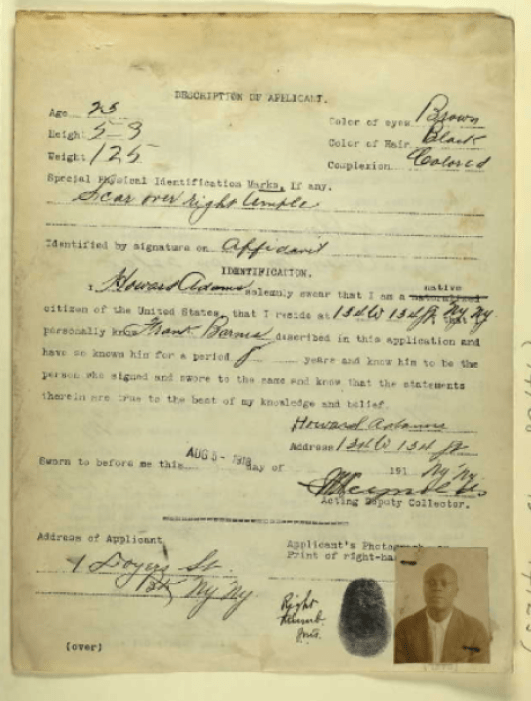 DESCRIPTION OF APPLICANT.
Age 25
Color of eyes Brown
Height 5-3
Color of Hair Black
Weight 125
Complexion Colored
Special Physical Identification Marks, if any.
Scar over right
Identified by signature on Affidavit
IDENTIFICATION.
I Howard Adams solemnly swear that I am a native naturalized
citizen of the United States, that I reside at 134 W 134 St NY NY
personally know Frank Barnes described in this application and
have so known him for a period years and know him to be the
person who signed and swore to the same and know that the statements
therein are true to the best of my knowledge and belief.
Howard Adams
Address 134 W 134 St
NY NY
Sworn to before me this AUG 5 - 1918 day of 191
Acting Deputy Collector.
Address of Applicant
Applicant's Photograph
Print of right-ha
St.
NY NY
Right
thumb
(over)